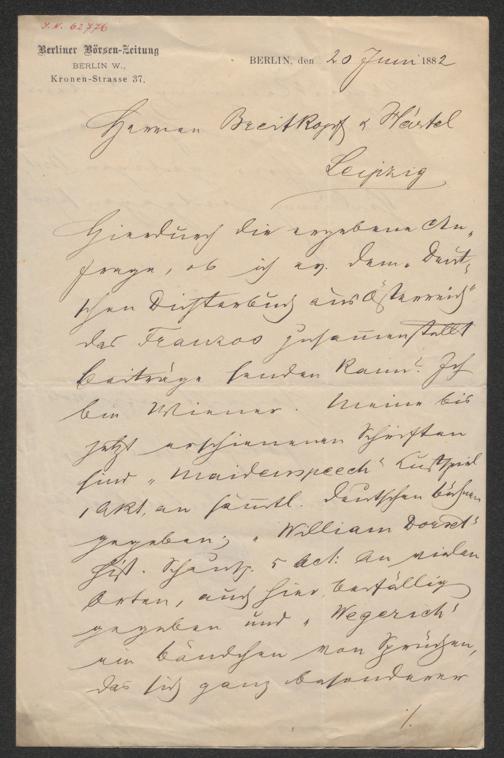 I.N. 62776
Berliner Börsen-Zeitung
BERLIN W.,
Kronen-Strasse 37.
BERLIN, den 20 Juni 1882
Herren Breitkopf & Härtel
Leipzig
Hierdurch die ergebene An-
frage, ob ich ev. dem "Deut-
schen Dichterbuch aus Österreich"
das Franzos zusammenstellt
Beiträge senden kann? Ich
bin Wiener. Meine bis
jetzt erschienenen Schriften
sind "Maidenspeech" Lustspiel
1 Akt, an sämtl. deutschen Bühnen
gegeben; "William Dorset"
hist. Schausp. 5 Act: an vielen
Orten, auch hier, beifällig
gegeben und "Wegerich"
ein Bändchen von Sprüchen,
das sich ganz besonderer
./.